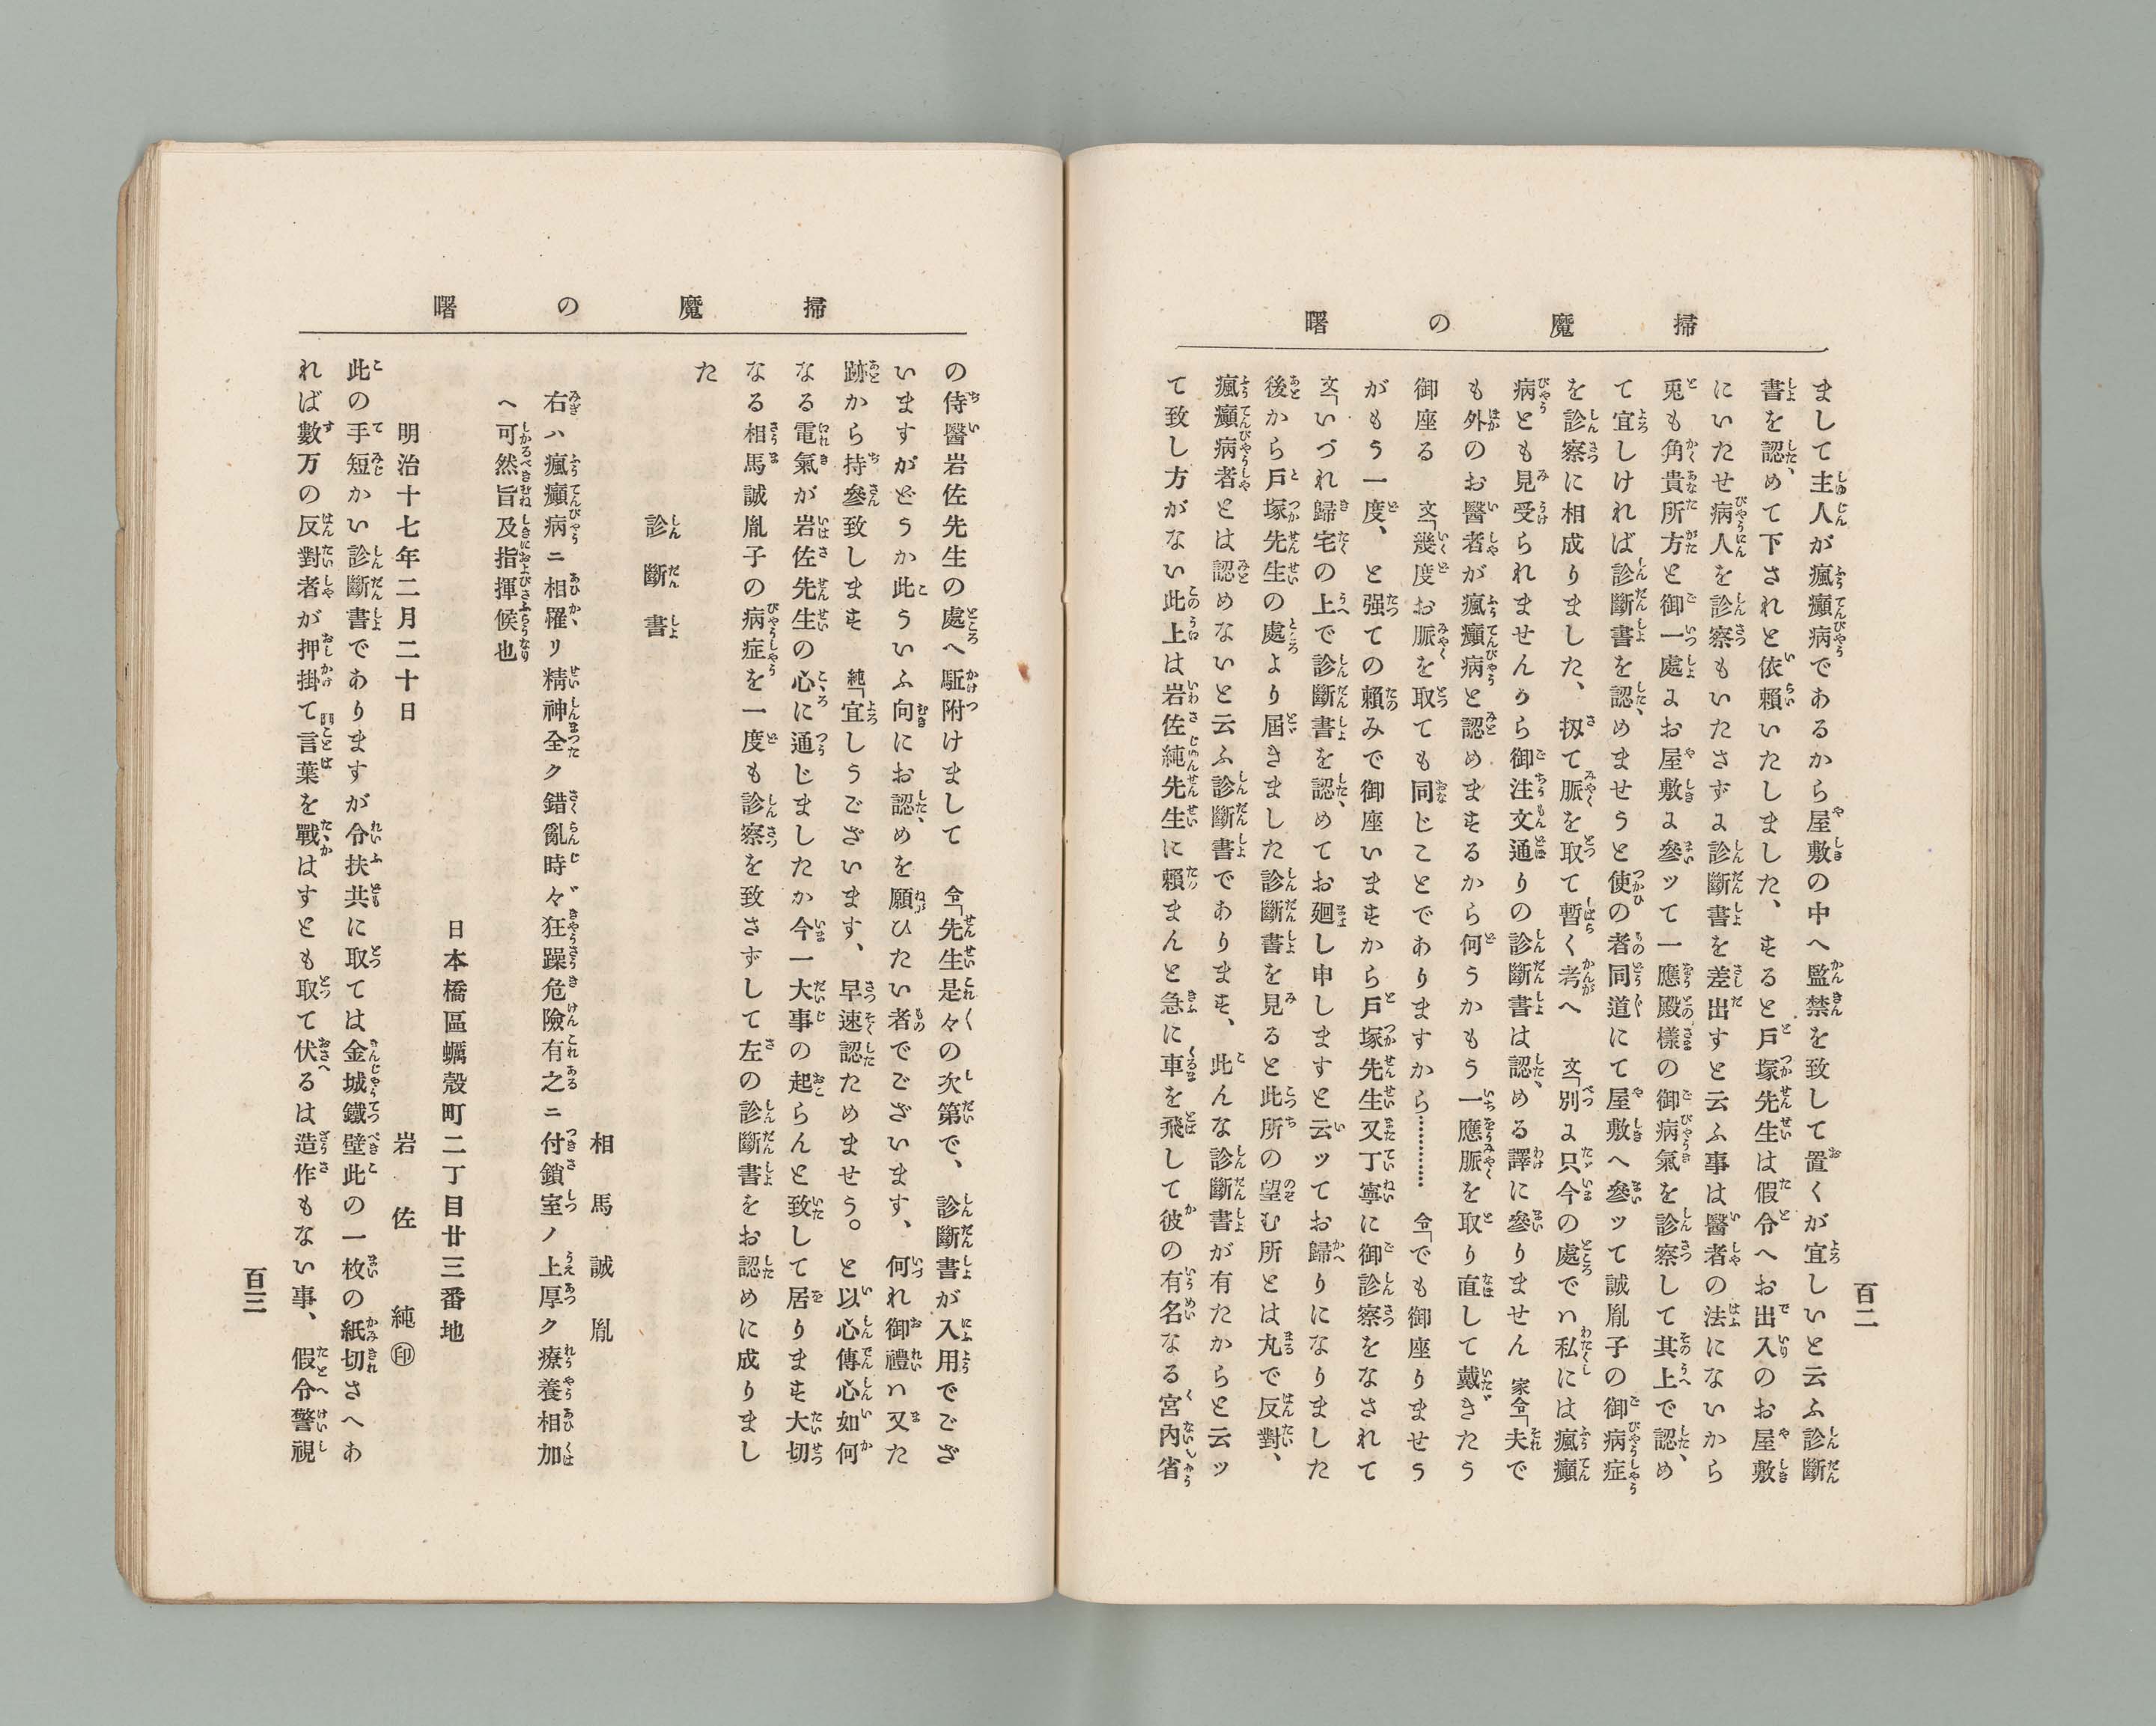 掃魔の曙
まして主人が瘋癲病であるから屋敷の中へ監禁を致して置くが宜しいと云ふ診斷
書を認めて下されと依賴いたしました、すると戸塚先生は假令へお出入のお屋敷
にいたせ病人を診察もいたさずに診斷書を差出すと云ふ事は醫者の法にないから
兎も角貴所方と御一處にお屋敷に參ッて一應殿樣の御病氣を診察して其上で認め
て宜しければ診斷書を認めませうと使の者同道にて屋敷へ參ッて誠胤子の御病症
を診察に相成りました、扨て脈を取て暫く考へ 文「別に只今の處でハ私には瘋癲
病とも見受られませんから御注文通りの診斷書は認める譯に參りません 家令「夫で
も外のお醫者が瘋癲病と認めまするから何うかもう一應脈を取り直して戴きたう
御座る 文「幾度お脈を取ても同じことでありますから………… 令「でも御座りませう
がもう一度、と强ての賴みで御座いますから戸塚先生又丁寧に御診察をなされて
文「いづれ歸宅の上で診斷書を認めてお廻し申しますと云ッてお歸りになりました
後から戸塚先生の處より屆きました診斷書を見ると此所の望む所とは丸で反對、
瘋癲病者とは認めないと云ふ診斷書であります、此んな診斷書が有たからと云ッ
て致し方がない此上は岩佐純先生に賴まんと急に車を飛して彼の有名なる宮内省
百二
掃魔の曙
の侍醫岩佐先生の處へ駈附けまして 令「先生是々の次第で、診斷書が入用でござ
いますがどうか此ういふ向にお認めを願ひたい者でございます、何れ御禮ハ又た
跡から持參致します 純「宜しうございます、早速認ためませう。と以心傳心如何
なる電氣が岩佐先生の心に通じましたか今一大事の起らんと致して居ります大切
なる相馬誠胤子の病症を一度も診察を致さずして左の診斷書をお認めに成りまし
た
診斷書
相馬誠胤
右ハ瘋癲病ニ相罹リ精神全ク錯亂時々狂躁危險有之ニ付鎖室ノ上厚ク療養相加
へ可然旨及指揮候也
日本橋區蠣殼町二丁目廿三番地
明治十七年二月二十日
岩佐純㊞
此の手短かい診斷書でありますが令扶共に取ては金城鐵壁此の一枚の紙切さへあ
れば數万の反對者が押掛て言葉を戰はすとも取て伏るは造作もない事、假令警視
百三